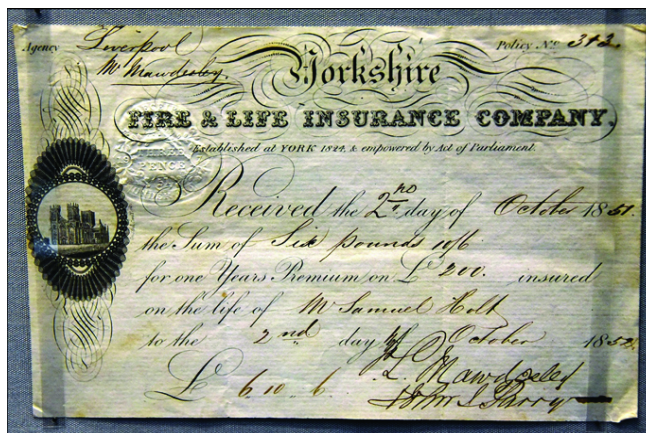 Agency Liverpool Policy No. 343.
Mr Mawdesley.
Yorkshire
FIRE & LIFE INSURANCE COMPANY.
Established at YORK 1824, & empowered by Act of Parliament.
PENCE
Received the 2nd day of October 1851.
the Sum of Six pounds 10/6
for one Years Premium on £ 200. insured
on the life of Mr Samuel Holt
to the 2nd day of October 1852.
£ 6. 10. 6. Mawdesley